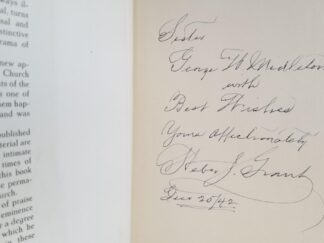 ways il-
al, turns
nal and
stinctive
rama of
new ap-
Church
ts of the
s one of
em hap-
and was
published
terial are
intimate
times of
this book
e perma-
urch.
of praise
eminence
r a degree
which be
these
Sister
George W. Middleton
with
Best Wishes
Yours Affectionately
Heber J. Grant
Dec 20/42